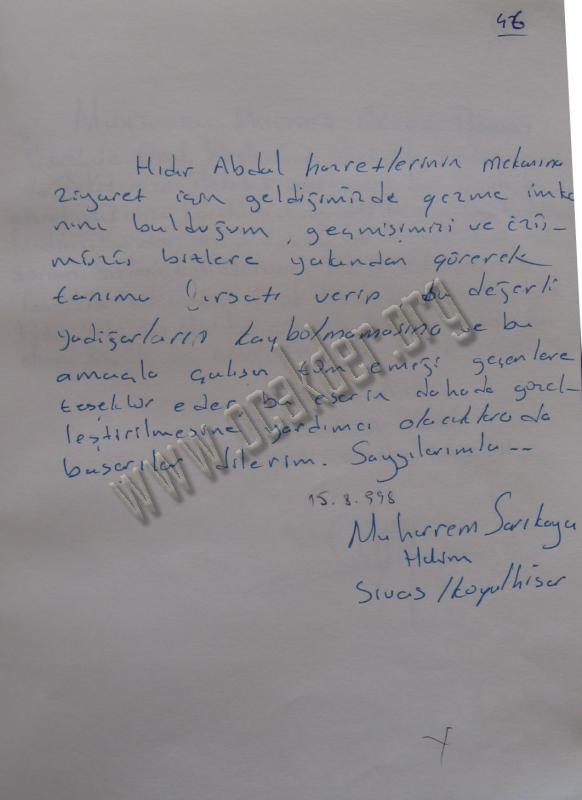 46
Hıdır Abdal hazretlerinin mekanına
ziyaret için geldiğimizde gezme imka
nını bulduğum, geçmişimizi ve özü-
müzü bizlere yakından görerek
tanıma fırsatı verip bu değerli
yadigarların kaybolmamasına ve bu
amaçla çalışan tüm emeği geçenlere
teşekkür eder, bu eserin dahada güzel-
leştirilmesine yardımcı olacaklarada
başarılar dilerim. Saygılarımla --
15.8.998
Muharrem Sarıkaya
Hakim
Sivas / Koyulhisar
www.ocakder.org